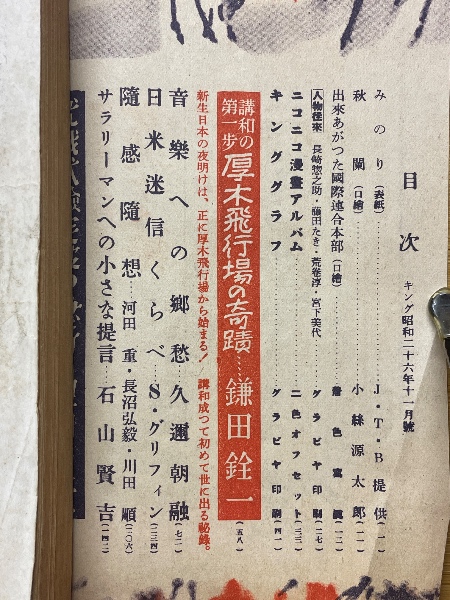 目次
キング昭和二十六年十一月號
みのり(表紙)……J・T・B提供(一)
秋闌(口繪)……小絲源太郎(一一)
出來あがつた國際連合本部(口繪)……着色寫眞(一二)
人物往來 長崎惣之助・藤田たき・荒卷淳・宮下美代……グラビヤ印刷(二七)
ニコニコ漫畫アルバム……二色オフセット(三三)
キンググラフ……グラビヤ印刷(四一)
講和の第一步 厚木飛行場の奇蹟……鎌田銓一(五八)
新生日本の夜明けは、正に厚木飛行場から始まる! 講和成つて初めて世に出る祕錄。
音樂への鄕愁……久邇朝融(七二)
日米迷信くらべ……S・グリフィン(二三四)
隨感隨想……河田重・長沼弘毅・川田順(二〇六)
サラリーマンへの小さな提言……石山賢吉(二四二)